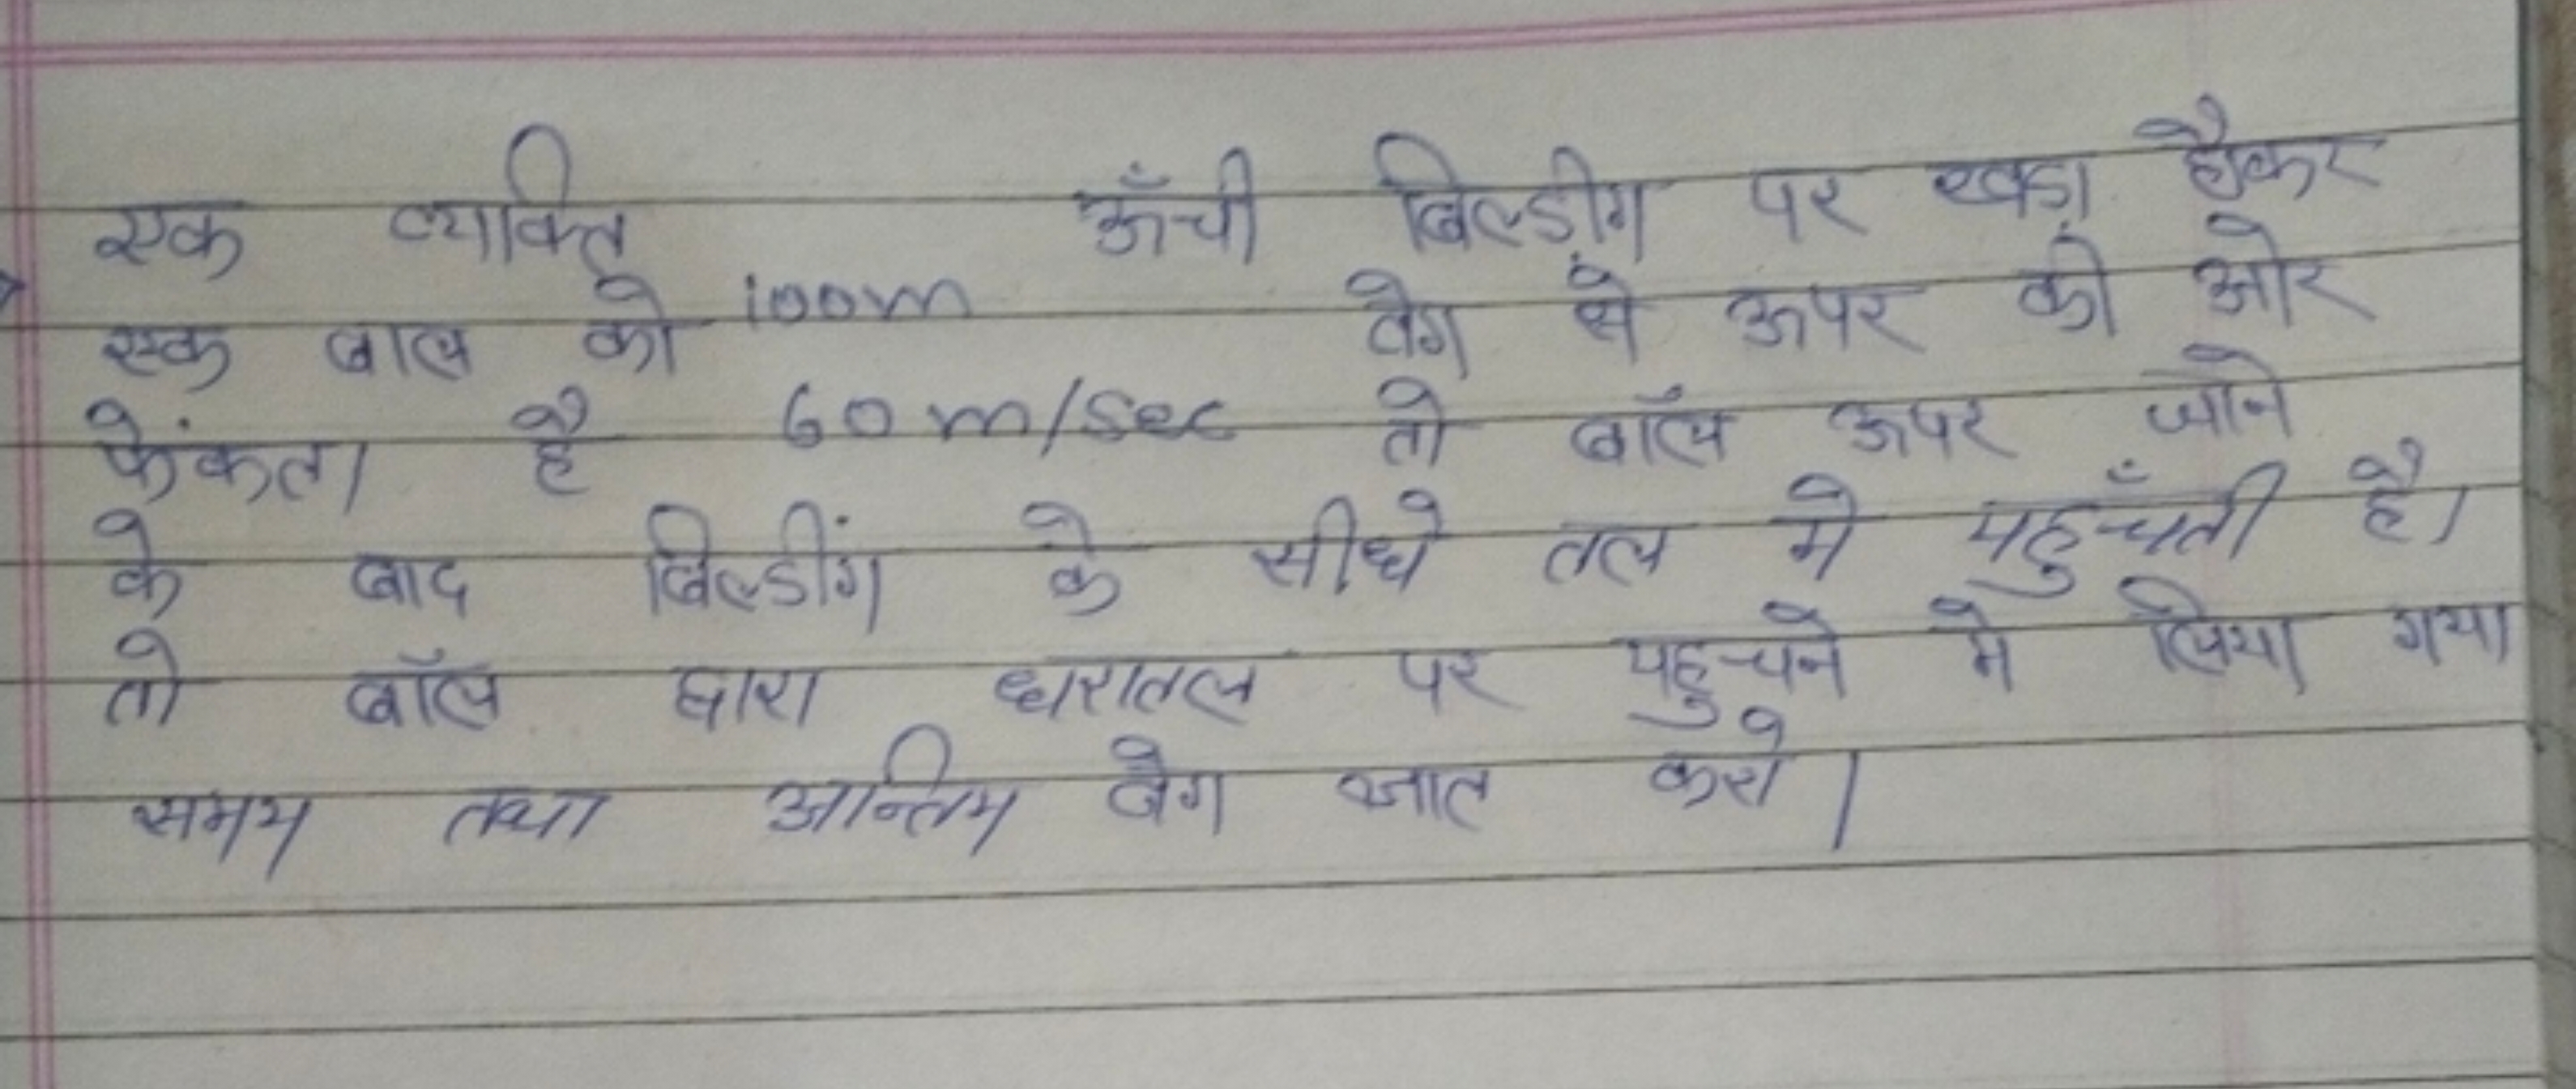 एक व्यक्ति ऊँची बिल्डींग पर खड़ा होकर
एक बाल को 100m वेग से ऊपर की ओर
फेंकता है 60 m/sec तो बॉल ऊपर जाने
के बाद बिल्डींग के सीधे तल मे पहुँचती है।
तो बॉल द्वारा धरातल पर पहुचने मे लिया गया
समय तथा अन्तिम वेग ज्ञात करो।